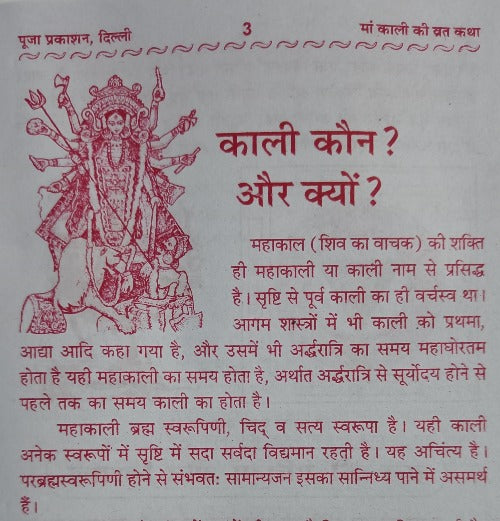 पूजा प्रकाशन, दिल्ली 3 मां काली की व्रत कथा
काली कौन ?
और क्यों ?
महाकाल (शिव का वाचक) की शक्ति
ही महाकाली या काली नाम से प्रसिद्ध
है। सृष्टि से पूर्व काली का ही वर्चस्व था।
आगम शास्त्रों में भी काली को प्रथमा,
आद्या आदि कहा गया है, और उसमें भी अर्द्धरात्रि का समय महाघोरतम
होता है यही महाकाली का समय होता है, अर्थात अर्द्धरात्रि से सूर्योदय होने से
पहले तक का समय काली का होता है।
महाकाली ब्रह्म स्वरूपिणी, चिद् व सत्य स्वरूपा है। यही काली
अनेक स्वरूपों में सृष्टि में सदा सर्वदा विद्यमान रहती है। यह अचिंत्य है।
परब्रह्मस्वरूपिणी होने से संभवतः सामान्यजन इसका सान्निध्य पाने में असमर्थ
हैं।